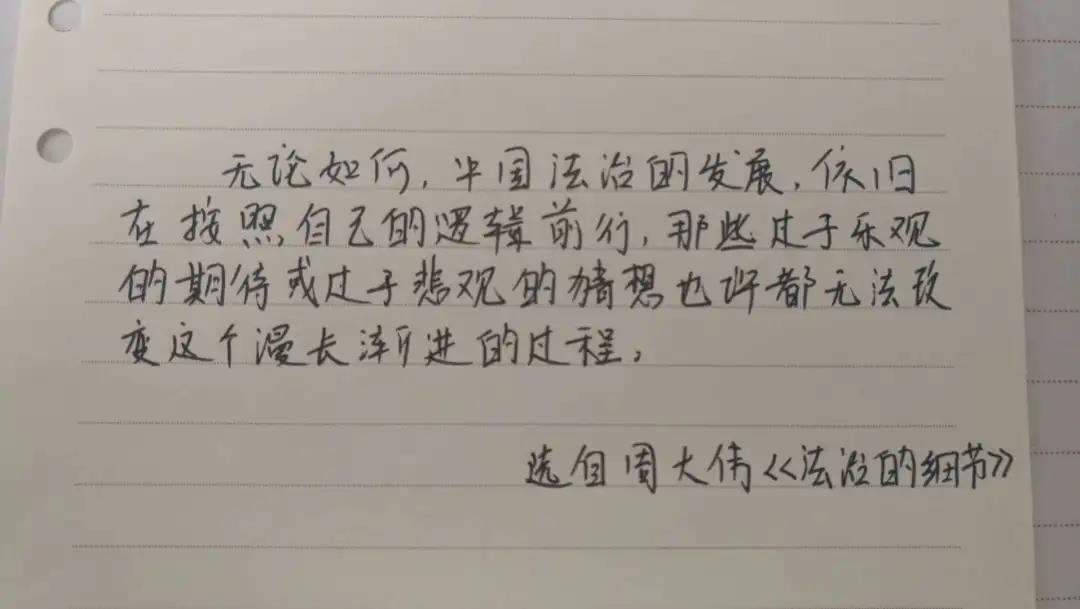 无论如何,中国法治的发展,依旧
在按照自己的逻辑前行,那些过于乐观
的期待或过于悲观的猜想也许都无法改
变这个漫长渐进的过程。
选自周大伟《法治的细节》